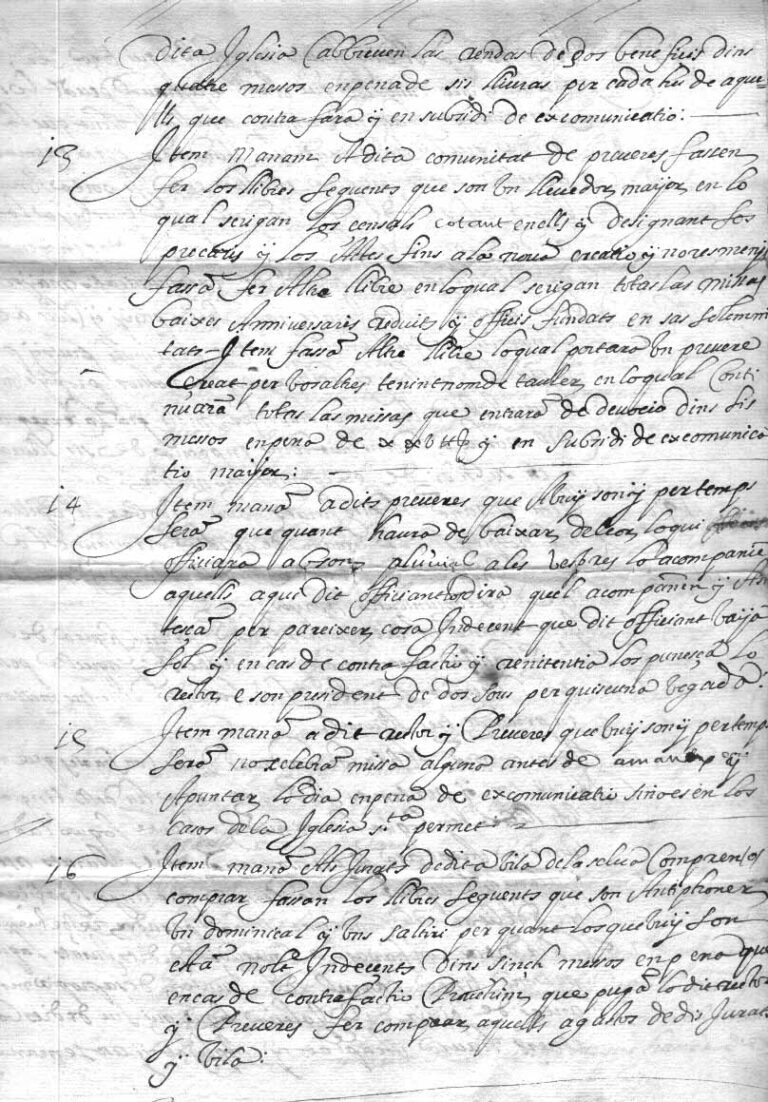 dita Iglesia Cabbreuen las rendas de dos beneficis dins
quatre mesos en pena de sis lliuras per cada hu de aque-
lls que contra fara y en subsidi de excomunicatio:
13 Item Manam A dita comunitat de preueres fassen
fer los llibres seguents que son Vn lleuador major en lo
qual serigan los censals cotant en ells y designant los
precaris y los Altes fins a la noua creatio y nores menys
fassā fer Altre llibre en lo qual serigan totas las missas
baixes Anniversaris reduits y officis fundats en sas solemni
tats Item fassā Altre llibre lo qual portara Vn preuere
Creat per vosaltres tenint nom de tauler en lo qual Conti
nuarā totas las missas que entrarā de deuocio dins sis
mesos en pena de y en subsidi de excomunica
tio major:
14 Item manā a dits preueres que Abuy son y per temps
serā que quant haura de baixar del cor lo qui
officiara ab son pluuial a les vespres lo acompanie
aquells a qui dit officiant dira quel acompanien y
per pareixer cosa Indecent que dit officiant vaja
sol y en cas de contra factio y renitentia los punesca lo
rector e son president de dos sous per quiscuna vegada:
15 Item manā a dit rector y Preueres que buy son y per temps
serā no celebrā missa alguna antes de y
Apuntar lo dia en pena de excomunicatio sino es en los
casos de la Iglesia s.ta permet:
16 Item manā Als Jurats de dita vila de la selua Compren o
comprar fassan los llibres seguents que son Antiphoner
Vn dominical y Vns saltiri per quant los que buy son
estā molt Indecents dins sinch mesos en pena que
en cas de contra factio que pugā lo dit rector
y Preueres fer comprar aquells a gastos de dis Jurats
y vila: